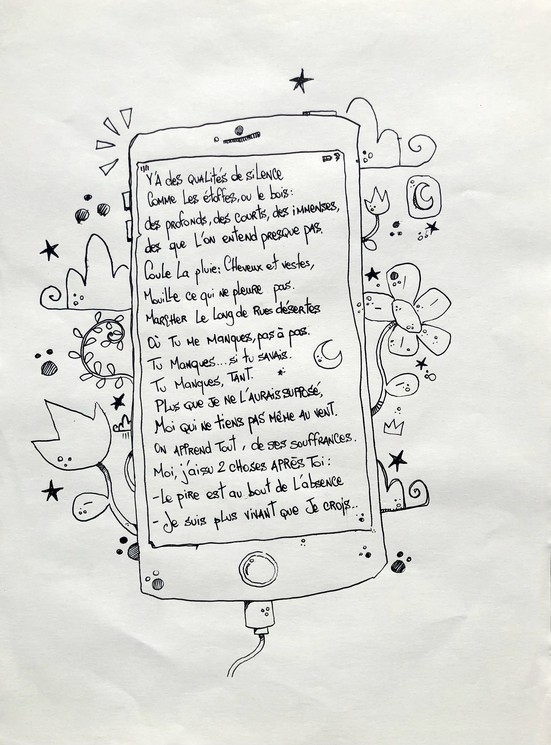 Y'A des QUALITÉS de silence
Comme Les étoffes, ou le bois:
des profonds, des courts, des immenses,
des que L'on entend presque pas.
Coule La pluie: Cheveux et vestes,
Mouille ce qui ne pleure pas.
Marcher Le Long de Rues désertes
Où Tu me Manques, pas à pas.
Tu Manques... si tu savais.
Tu Manques, TANT.
Plus que Je ne L'aurais supposé,
Moi qui ne tiens pas même au vent.
On apprend Tout, de ses souffrances.
Moi, j'ai su 2 choses après Toi:
-Le pire est au bout de L'absence
- Je suis plus vivant que Je crois...